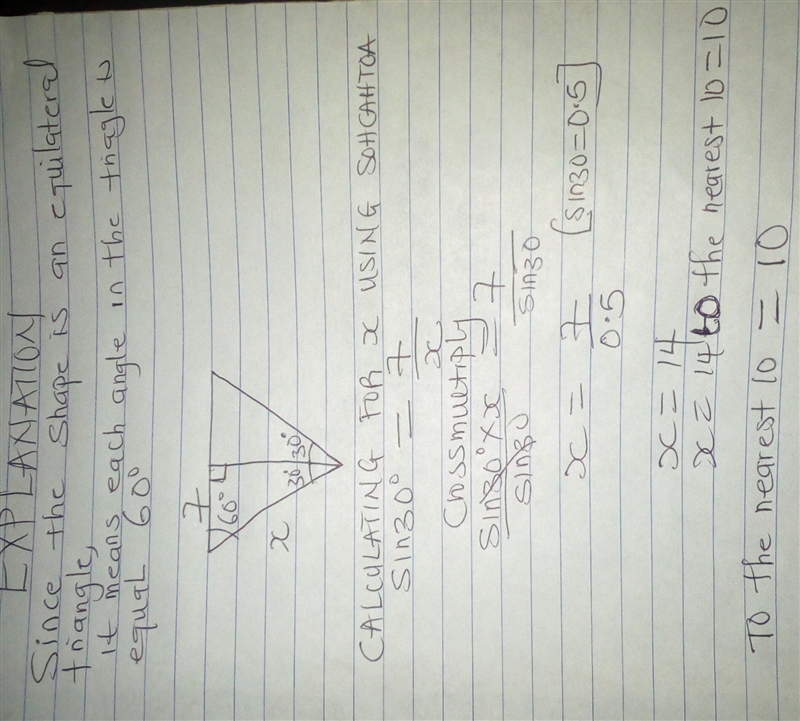 EXPLANATION
Since the shape is an equilateral
triangle,
it means each angle in the triagle is
equal 60°
7
60°
30° 30°
x
CALCULATING FOR x USING SOHCAHTOA
Sin30° = 7/x
Crossmultiply
Sin30° × x / Sin30 = 7 / Sin30
x = 7/0.5 [Sin30=0.5]
x = 14
x = 14 to the nearest 10 = 10
To the nearest 10 = 10